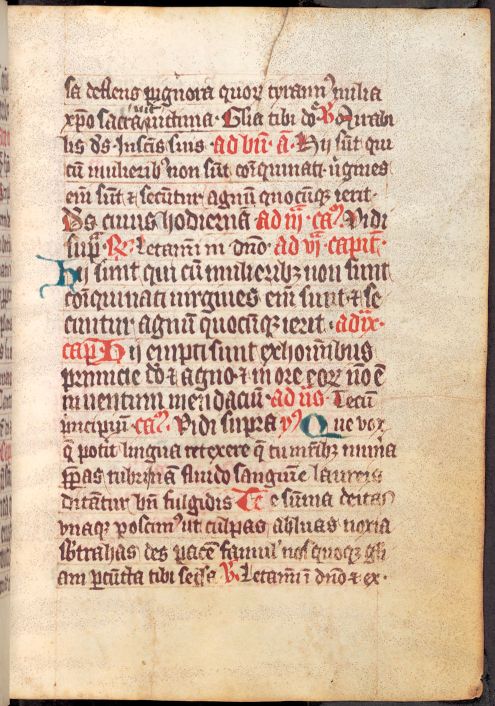 sa deflens pignora quor tyrann' milia
xp̄o sacrauit uictima. Glia tibi dō. V. Mirabi
lis ds̄. Justoꝝ suis ad vīn. ā. Hij sūt qui
cū mulierib' non sūt coīquinati. ūgines
em̄ sūt ⁊ secūtur agnū quocūqꝫ ierit.
Ds̄ cuius hodierna ad iij. ca'. Vidi
sup̄. R. Letamī in dn̄o. ad vj. capit̄.
Hij sunt qui cū mulieribꝫ non sunt
coīquinati uirgines em̄ sunt ⁊ se
cuntur agnū quocūqꝫ ierit. ad ix.
cap̄. Hij empti sunt ex hoīnibus
primicie dō ⁊ agno. ⁊ in ore eoꝝ nō ē
inuentum mendaciū. ad vō. Tecū
principiū. ca'. Vidi supra. y'. Que vox
q̄ potit lingua retexere q̄ tu m̄rībꝫ munia
p̄pas rubri nā fluido sanguine laureis
ditātur bn̄ fulgidis Te summa deitas
vnaqꝫ poscim' ut culpas abluas noxia
sb̄trahas des pacē famul' nos quoqꝫ gli
am p cūcta tibi secl'a V. Letamī ī dn̄o ⁊ ex.